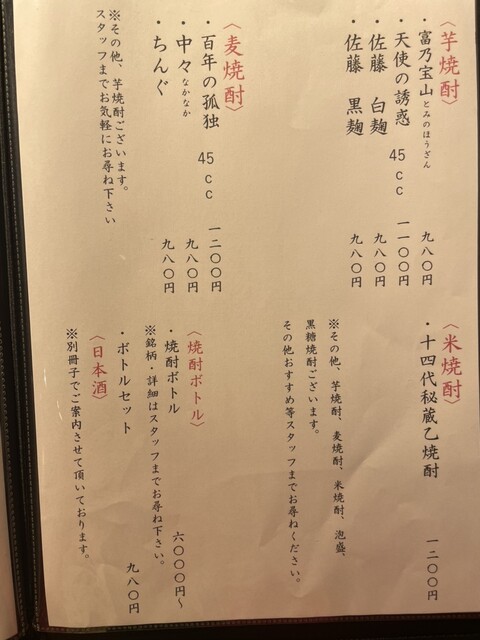 〈芋焼酎〉
・富乃宝山 とみのほうざん 九八〇円
・天使の誘惑 45cc 一一〇〇円
・佐藤 白麹 九八〇円
・佐藤 黒麹 九八〇円
〈麦焼酎〉
・百年の孤独 45cc 一二〇〇円
・中々 なかなか 九八〇円
・ちんぐ 九八〇円
※その他、芋焼酎ございます。
スタッフまでお気軽にお尋ね下さい
〈米焼酎〉
・十四代秘蔵乙焼酎 一二〇〇円
※その他、芋焼酎、麦焼酎、米焼酎、泡盛、
黒糖焼酎ございます。
その他おすすめ等スタッフまでお尋ねください。
〈焼酎ボトル〉
・焼酎ボトル 六〇〇〇円〜
※銘柄・詳細はスタッフまでお尋ね下さい。
・ボトルセット 九八〇円
〈日本酒〉
※別冊子でご案内させて頂いております。